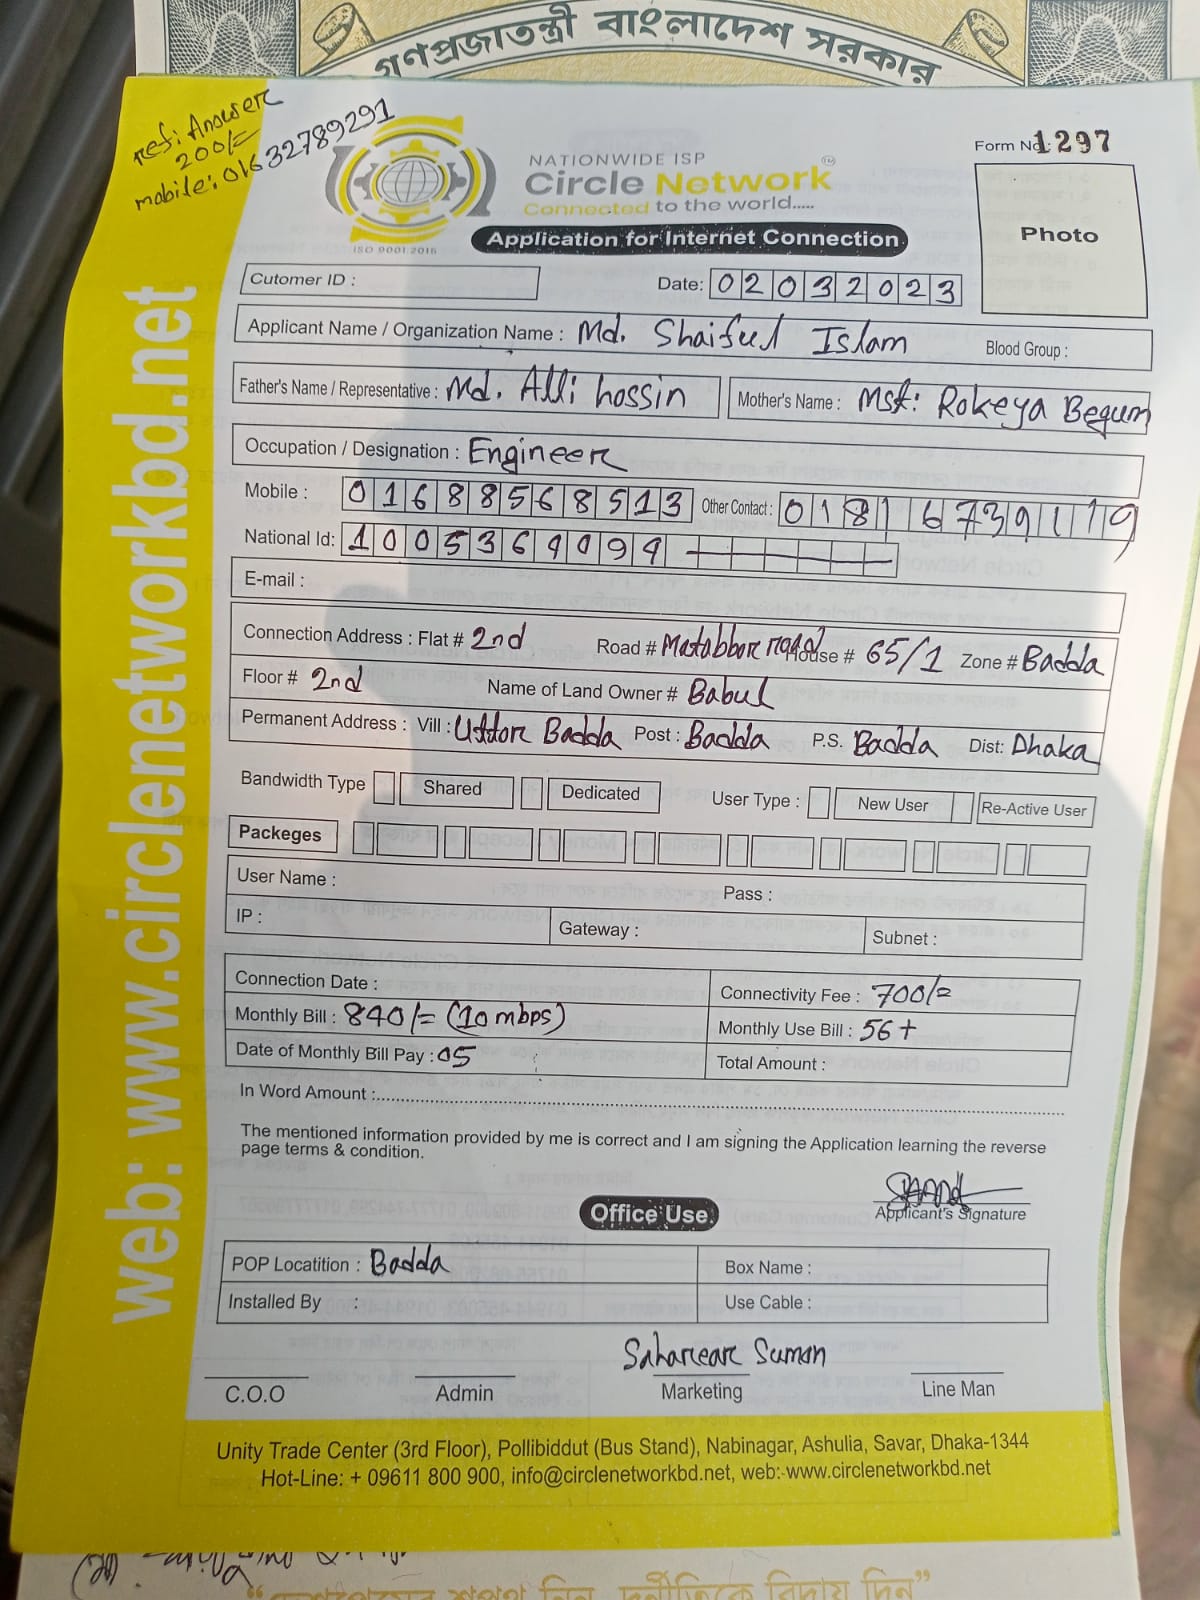 গণপ্রজাতন্ত্রী বাংলাদেশ সরকার
ref: Answer
200/=
mobile: 01632789291
NATIONWIDE ISP
Circle Network
TM
Connected to the world.....
ISO 9001:2015
Application for Internet Connection
Form No: 1297
Photo
Cutomer ID :
Date: 02032023
Applicant Name / Organization Name : Md. Shaiful Islam Blood Group :
Father's Name / Representative : Md. Alli hossin Mother's Name : Mst: Rokeya Begum
Occupation / Designation : Engineer
Mobile : 01688568513 Other Contact : 01816739119
National Id: 1005369099
E-mail :
Connection Address : Flat # 2nd Road # Matabbor road House # 65/1 Zone # Badda
Floor # 2nd Name of Land Owner # Babul
Permanent Address : Vill : Uttor Badda Post : Badda P.S. Badda Dist: Dhaka
Bandwidth Type Shared Dedicated User Type : New User Re-Active User
Packeges
User Name : Pass :
IP : Gateway : Subnet :
Connection Date : Connectivity Fee : 700/=
Monthly Bill : 840/= (10 mbps) Monthly Use Bill : 56+
Date of Monthly Bill Pay : 05 Total Amount :
In Word Amount :
The mentioned information provided by me is correct and I am signing the Application learning the reverse
page terms & condition.
Applicant's Signature
Office Use.
POP Locatition : Badda Box Name :
Installed By : Use Cable :
Sahareare Suman
C.O.O Admin Marketing Line Man
Unity Trade Center (3rd Floor), Pollibiddut (Bus Stand), Nabinagar, Ashulia, Savar, Dhaka-1344
Hot-Line: + 09611 800 900, info@circlenetworkbd.net, web:-www.circlenetworkbd.net
web: www.circlenetworkbd.net
শপথ নিন, দুর্নীতিকে বিদায় দিন"